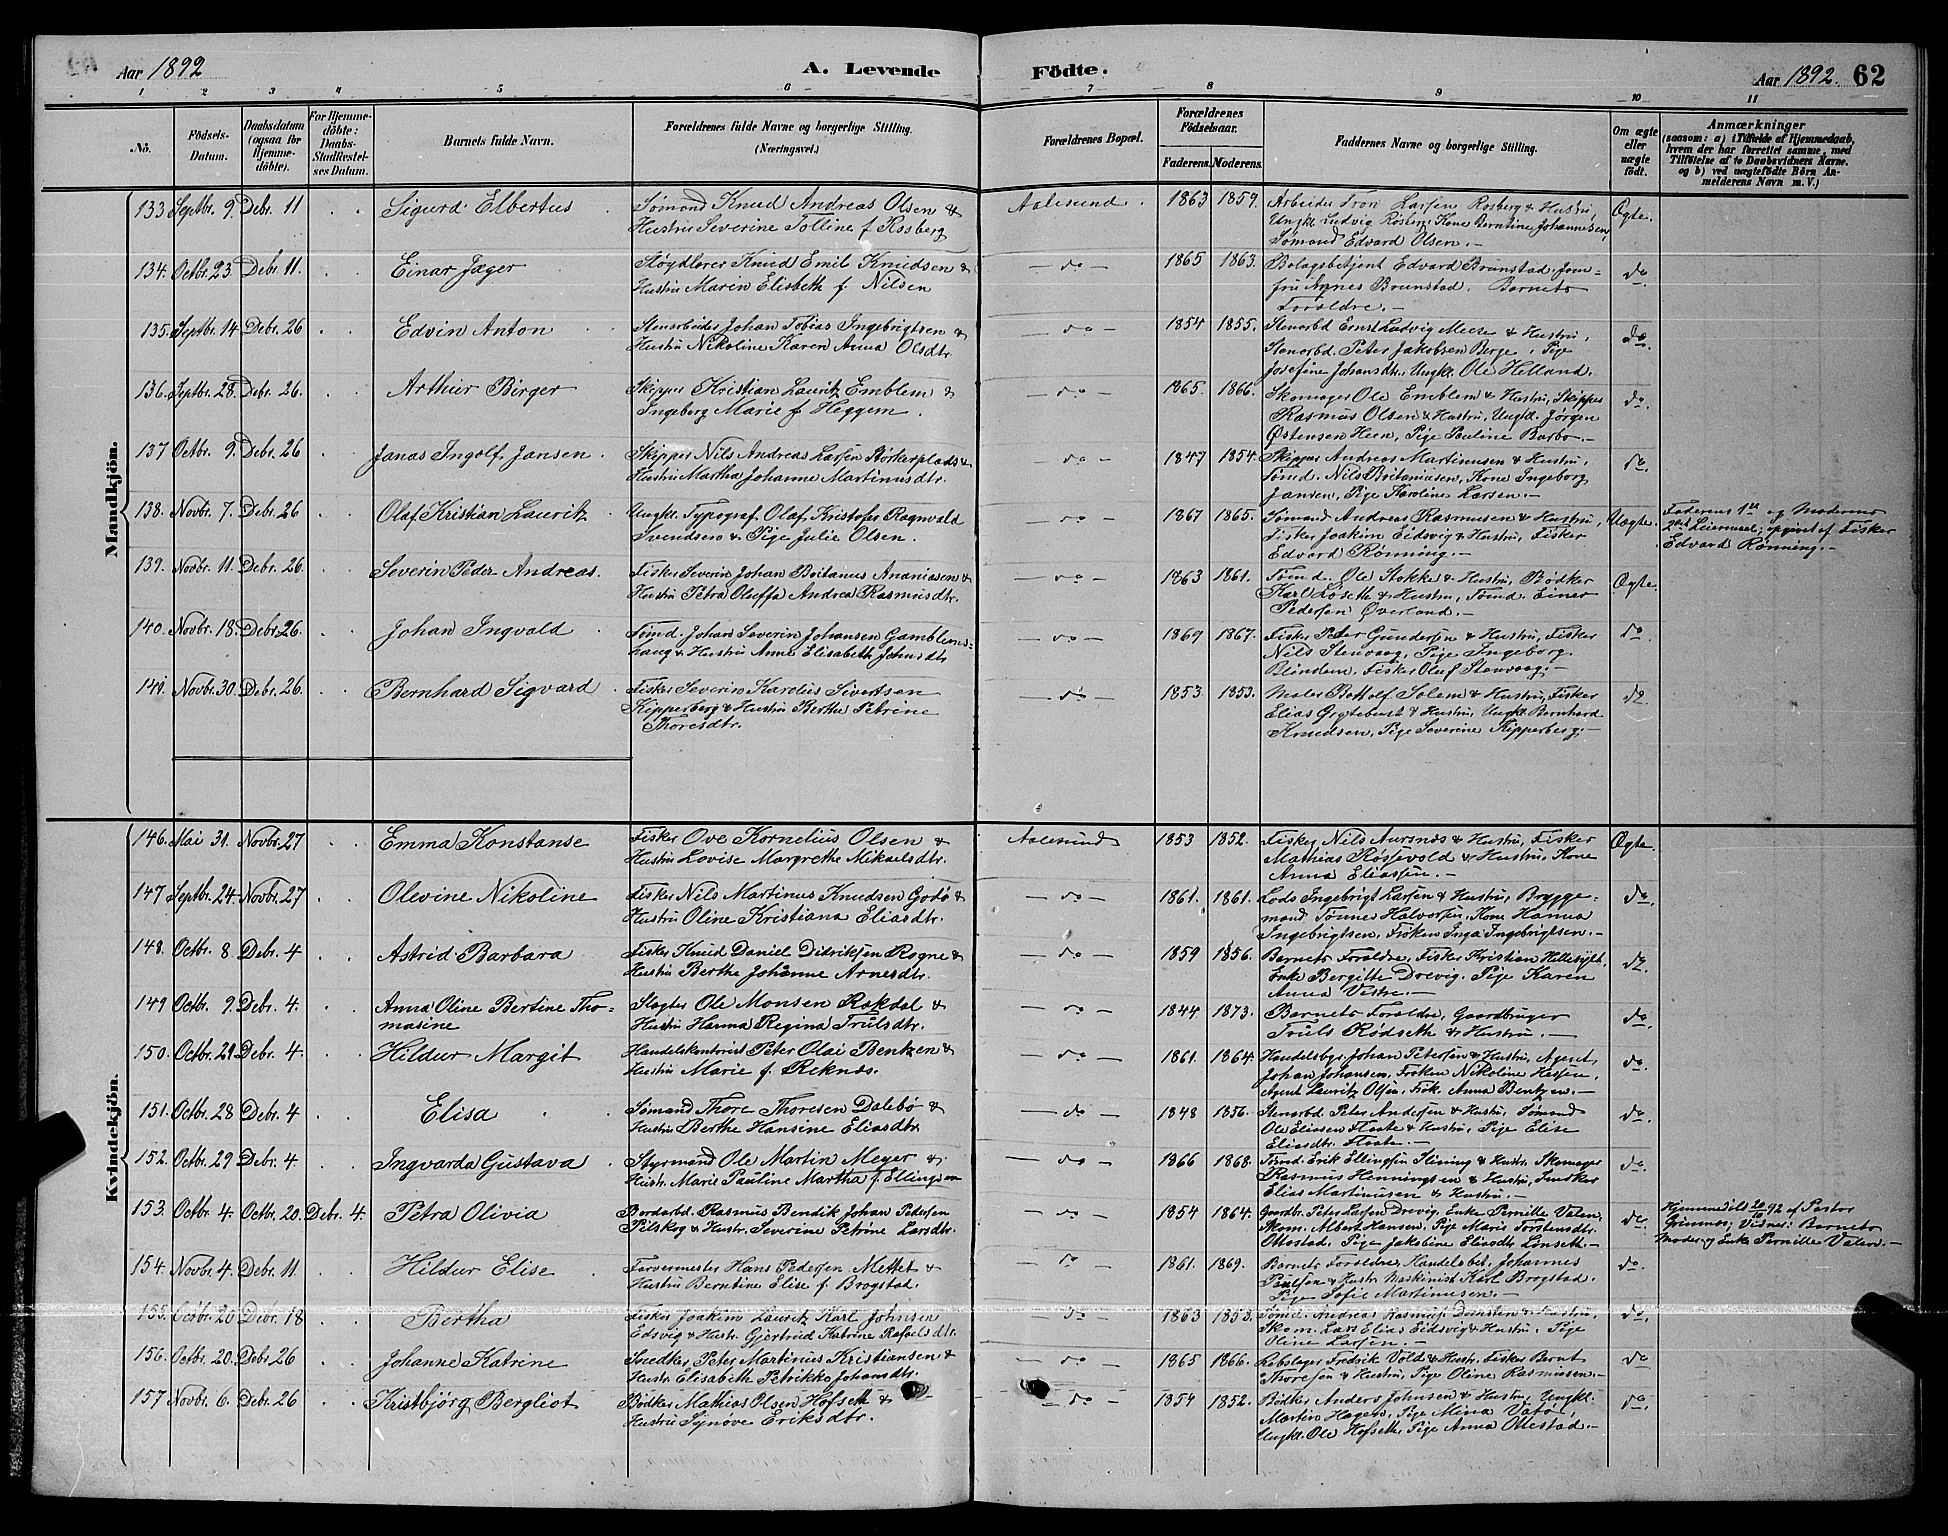 Aar 1892
A. Levende
Födte.
Aar 1892. 62
1 2 3 4 5 6 7 8 9 10 11
No.
Födsels-Datum.
Daabsdatum (ogsaa for Hjemme-döbte).
For Hjemme-döbte: Daabs-Stadfæstel-ses Datum.
Barnets fulde Navn.
Forældrenes fulde Navne og borgerlige Stilling.
(Næringsvei.)
Forældrenes Bopæl.
Forældrenes Födselsaar.
Faderens. Moderens.
Faddernes Navne og borgerlige Stilling.
Om ægte eller uægte födt.
Anmærkninger
(saasom: a) i Tilfælde af Hjemmedaab,
hvem der har forrettet samme, med
Tilföielse af to Daabsvidners Navne.
og b) ved uægtefödte Börn An-
melderens Navn m. V.)
Mandkjön.
133 Septbr. 9. Debr. 11 Sigurd Elbertus Sømand Knud Andreas Olsen & Aalesund. 1863 1859. Arbeider Tron Larsen Rosberg & Hustru, Ægte.
Hustru Severine Tolline f. Rosberg Ungkl. Ludvig Rosberg, Kone Berntine Johannesen,
Sømand Edvard Olsen.–
134. Octbr. 23 Debr. 11. Einar Jæger Knud Emil Knudsen & – do – 1865 1863. Bolagsbetjent Edvard Brunstad, Jom- do
Hustru Maren Elisbeth f. Nilsen fru Agnes Brunstad. Barnets
Forældre.–
135. Septbr. 14 Debr. 26 Edvin Anton Stenarbeider Johan Tobias Ingebrigtsen & – do – 1854 1855. Stenarbd. Ernst Ludvig & Hustru, do.
Hustru Nikoline Karen Anna Olsdtr. Stenarbd. Peter Jakobsen Berge, Pige
Josefine Johansdtr., Ungkl. Ole Helland.
136. Septbr. 28. Debr. 26. Arthur Birger Skipper Kristian Lauritz Emblem & – do – 1865. 1866. Skomager Ole Emblem & Hustru, Skipper do.
Ingeborg Marie f. Heggem. Rasmus Olsen & Hustru, Ungkl. Jörgen
Østensen Heen, Pige Pauline Barbo.–
137 Octbr. 9. Debr. 26 Janas Ingolf Jansen Skipper Nils Andreas Larsen & – do – 1847 1854. Skipper Andreas Martinusen & Hustru, do.
Hustru Martha Johanne Martinusdtr. Tømd. Nils Britaniusen, Kone Ingeborg
Jansen, Pige Karoline Larsen.–
138. Novbr. 7. Debr. 26 Olaf Kristian Lauritz Ungkl. Typograf Olaf Kristofer Ragnvald – do – 1867 1865. Sømand Andreas Rasmusen & Hustru, Uægte. Faderens 1ste og Moderens
Svendsen & Pige Julie Olsen. Fisker Joakim Eidsvig & Hustru, Fisker 2det Leiermaal; opgivet af Fisker
Edvard Rønning.– Edvard Rønning.–
139. Novbr. 11. Debr. 26. Severin Peder Andreas. Fisker Severin Johan Britanus Ananiasen & – do – 1863 1861. Tømd. Ole Stokke & Hustru, Bødker Ægte.
Hustru Petra Oluffa Andrea Rasmusdtr. Karl Løseth & Hustru, Tømd. Einer
Pedersen Øverland.–
140. Novbr. 18. Debr. 26. Johan Ingvald Tømd. Johan Severin Johansen Gamblem- – do – 1869 1867. Fisker Peter Gundersen & Hustru, Fisker do
& Hustru Anne Elisabeth Johnsdtr. Nils Stenvaag, Pige Ingeborg
Blindem, Fisker Oluf Stenvaag.–
141. Novbr. 30. Debr. 26. Bernhard Sigvard Fisker Severin Karolus Sivertsen – do – 1853. 1853. Maler Bottolf Solem & Hustru, Fisker do.
Kipperberg & Hustru Berthe Petrine Elias Grytebust & Hustru, Ungkl. Bernhard
Thoresdtr. Knudsen, Pige Severine Kipperberg.–
Kvindekjön.
146. Mai 31. Novbr. 27 Emma Konstanse Fisker Ove Kornelius Olsen & Aalesund 1853 1852. Fisker Nils Aursnes & Hustru, Fisker Ægte
Hustru Lovise Margrethe Mikaelsdtr. Mathias Røssevold & Hustru, Kone
Anna Eliassen.–
147 Septbr. 24. Novbr. 27 Olevine Nikoline Fisker Nils Martinus Knudsen Godø & – do – 1861. 1861. Lods Ingebrigt Larsen & Hustru, Brygge- do.
Hustru Oline Kristiana Eliasdtr. mand Tønnes Halvorsen, Kone Hanna
Ingebrigtsen, Frøken Inga Ingebrigtsen.–
148. Octbr. 8 Debr. 4 Astrid Barbara Fisker Knud Daniel Didriksen Rogne & – do – 1859 1856. Barnets Forældre, Fisker Kristian Hellesylt, do.
Hustru Berthe Johanne Arnesdtr. Enke Bergitte Drevig. Pige Karen
Anna Vestre.–
149 Octbr. 9. Debr. 4. Anna Oline Bertine Tho- Slagter Ole Monsen Rokdal & – do – 1844 1873. Barnets Forældre, Gaardbruger do
masine Hustru Hanna Regina Trulsdtr. Truls Rødseth & Hustru.–
150. Octbr. 29 Debr. 4. Hildur Margit Handelskontorist Peter Olai Bentzen & – do – 1861. 1864. Handelsbgs. Johan Petersen & Hustru, Agent do.
Hustru Marie f. Reknes. Johan Johansen, Frøken Nikoline Hessen,
Agent Lauritz Olsen, Frøk. Anna Bentzen.–
151. Octbr. 28 Debr. 4 Elisa Sømand Thore Thoresen Dalebø & – do – 1848 1856. Stenarbd. Peter Andersen & Hustru, Sømand do.
Hustru Berthe Hansine Eliasdtr. Ole Eliasen Flaate & Hustru, Pige Elise
Eliasdtr. Flaate.–
152. Octbr. 29 Debr. 4. Ingvarda Gustava Styrmand Ole Martin Meyer & – do – 1866 1868. Tømd. Erik Ellingsen & Hustr. Skomager do.
Hustr. Marie Pauline Martha f. Ellingsen Rasmus Henningsen & Hustru, Snedker
Elias Martinusen & Hustru.–
153. Octbr. 4. Octbr. 20. Debr. 4. Petra Olivia Bordarbd. Rasmus Bendik Johan Pedersen – do – 1854 1864. Gaardbr. Peter Larsen Drevig, Enke Pernille Valen, do. Hjemmedøbt 20/10 92 af Pastor
Pilskog & Hustr. Severine Petrine Larsdtr. Skom. Albert Hansen, Pige Marie Torstensdtr. Vidner: Barnets
Ottestad. Pige Jakobine Eliasdtr. Lønseth.– Moder og Enke Pernille Valen.–
154. Novbr. 4. Debr. 11. Hildur Elise Farvermester Hans Pedersen Mettet & – do – 1861. 1869. Barnets Forældre, Handelsbet. Johannes do.
Hustru Berntine Elise f. Brogstad. Paulsen & Hustr. Maskinist Karl Brogstad.
Pige Sofie Martinusen.–
155. Octbr. 20 Debr. 18 Bertha Fisker Joakim Lauritz Karl Johnsen – do – 1863 1853. Tømd. Andreas Rasmus. & Hustru, do.
Edsvig & Hustr. Gjertrud Katrine Rafaelsdtr. Skom. Lars Elias Eidsvig & Hustru, Pige
Oline Larsen.–
156. Octbr. 20. Debr. 26 Johanne Katrine Snedker Peter Martinus Kristiansen & – do – 1865 1866. Fredrik Vold & Hustr. Fisker Bernt do
Hustr. Elisabeth Petrikke Johansdtr. Thoresen & Hustru, Pige Oline Rasmusen.–
157 Novbr. 6. Debr. 26 Kristbjörg Bergliot Bødker Mathias Olsen Hofseth & – do – 1854 1852. Bødker Anders Johnsen & Hustru, Ungkl. do.
Hustru Synøve Eriksdtr. Martin Hagen, Pige Mina Vatø,
Ungkl. Ole Hofseth, Pige Anna Ottestad.–